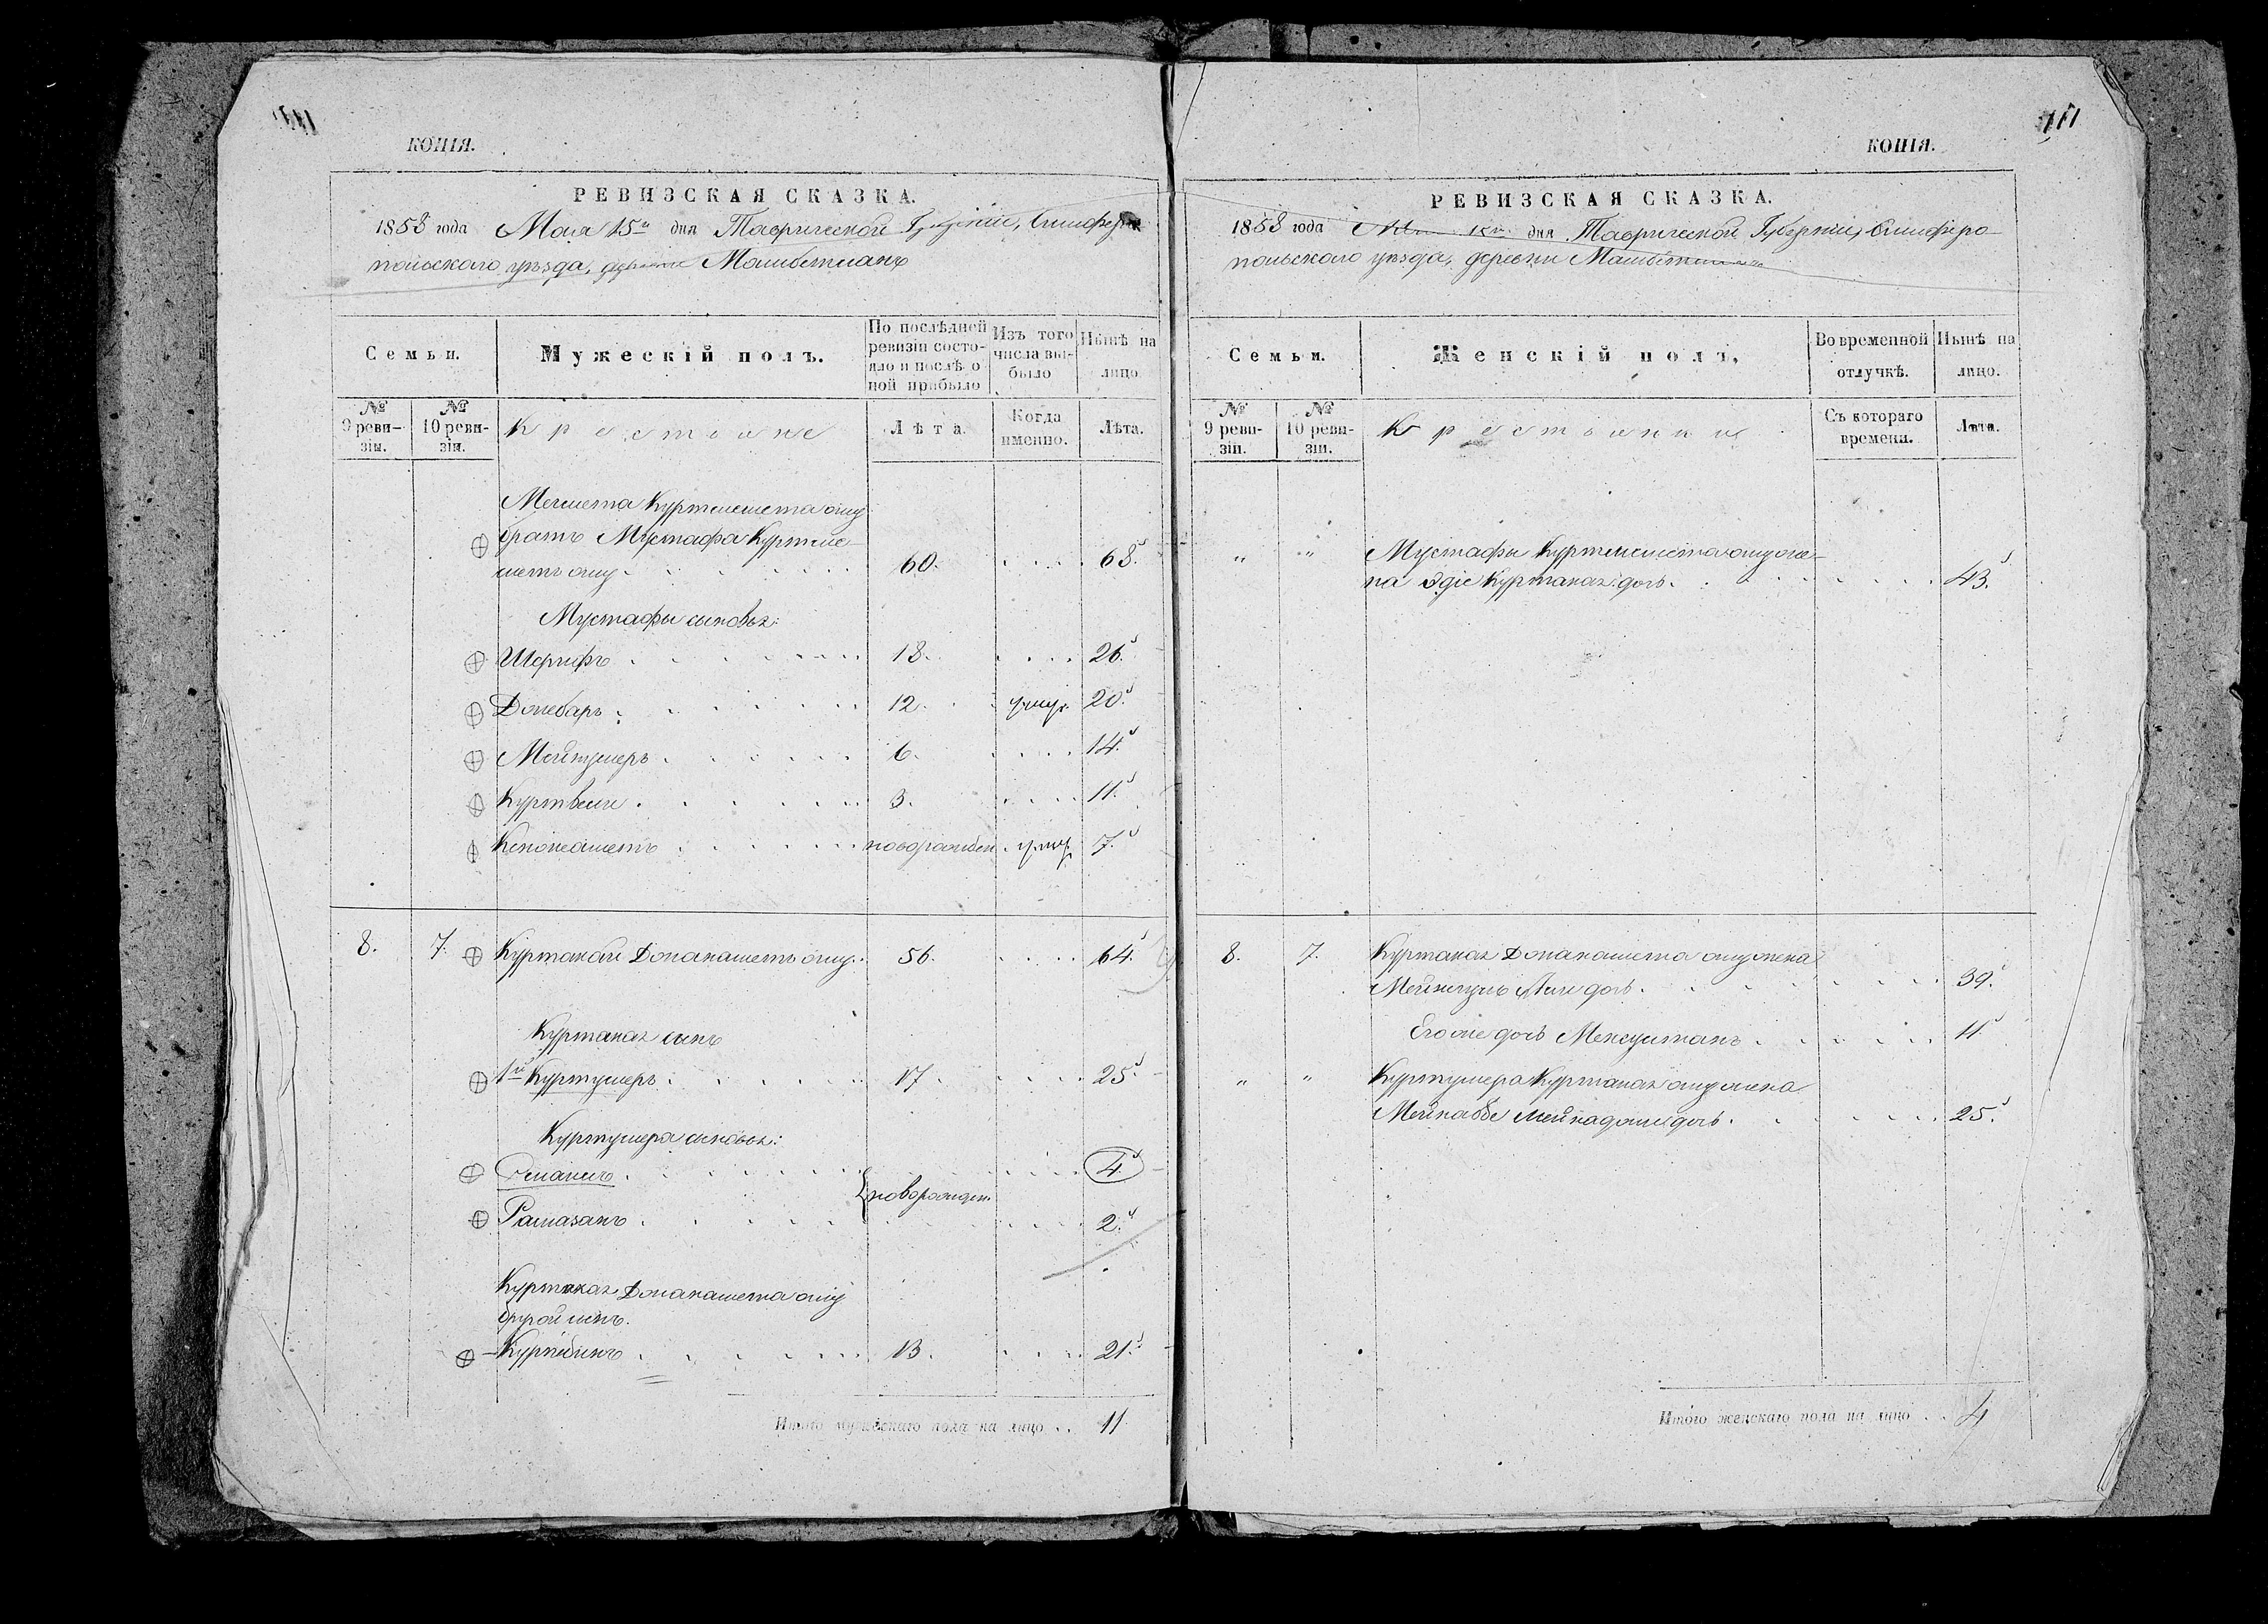 КОПІЯ.
РЕВИЗСКАЯ СКАЗКА.
1858 года Мая 15 дня Таврической Губерніи, Симферо-
польскаго уѣзда, деревни
Семьи.
Мужескій полъ.
По послѣдней ревизіи состояло и послѣ оной прибыло
Изъ того числа выбыло
Нынѣ на лицо
№ 9 ревизіи.
№ 10 ревизіи.
Крестьяне
Лѣта.
Когда именно.
Лѣта.
Мемета Куртмемета оглу
братъ Мустафа Куртме-
метъ оглу 60. 68.
Мустафы сыновья:
Шерифъ 18. 26.
12. умер. 20.
Мейтумеръ 6. 14.
Куртвели 3. 11.
новорожден. умер. 7.
8. 7. Куртакай оглу 56. 64.
Куртакая сынъ
1й Куртумеръ 17. 25.
Куртумера сыновья:
4.
новорожден.
Рамазанъ 2.
Куртакая оглу
другой сынъ.
13. 21.
Итого мужескаго пола на лицо . . 11
КОПІЯ.
РЕВИЗСКАЯ СКАЗКА.
1858 года Мая 15 дня Таврической Губерніи, Симферо-
польскаго уѣзда, деревни
Семьи.
Женскій полъ.
Во временной отлучкѣ.
Нынѣ на лицо.
№ 9 ревизіи.
№ 10 ревизіи.
Крестьянки
Съ котораго времени.
Лѣта.
" " Мустафы Куртмемета оглу же-
на Эдіе Куртакая дочь. 43.
8. 7. Куртакая оглу жена
Али дочь. 39.
Его же дочь 11.
" " Куртумера Куртакая оглу жена
дочь. 25.
Итого женскаго пола на лицо . . 4